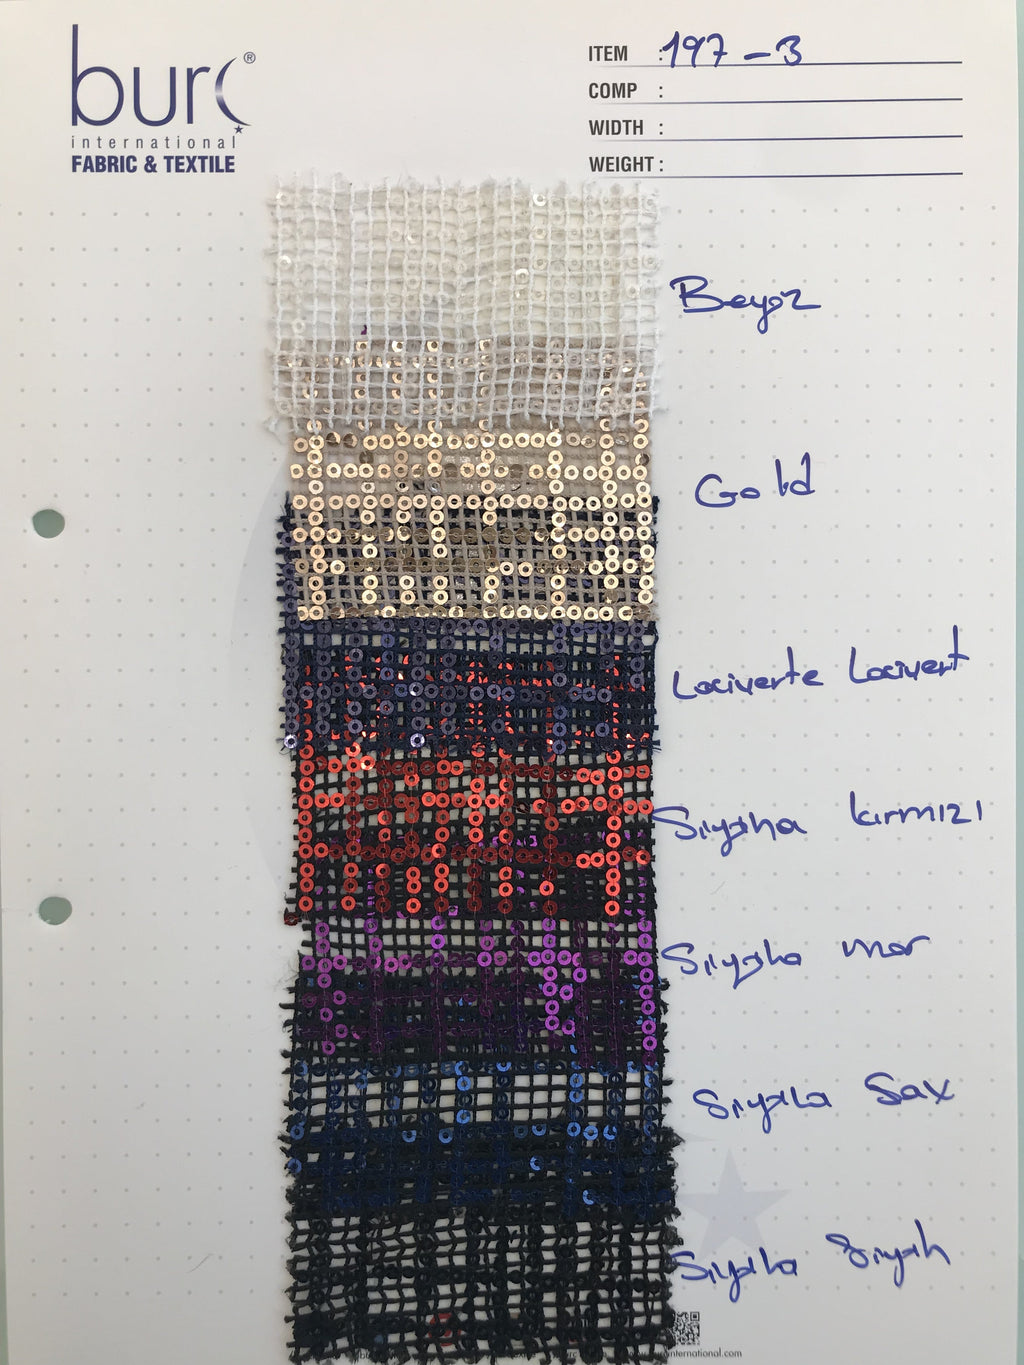 burc®
international
FABRIC & TEXTILE
ITEM : 197-3
COMP :
WIDTH :
WEIGHT :
Beyaz
Gold
Laciverte Lacivert
Siyaha kırmızı
Siyaha mor
Siyaha Sax
Siyaha Siyah